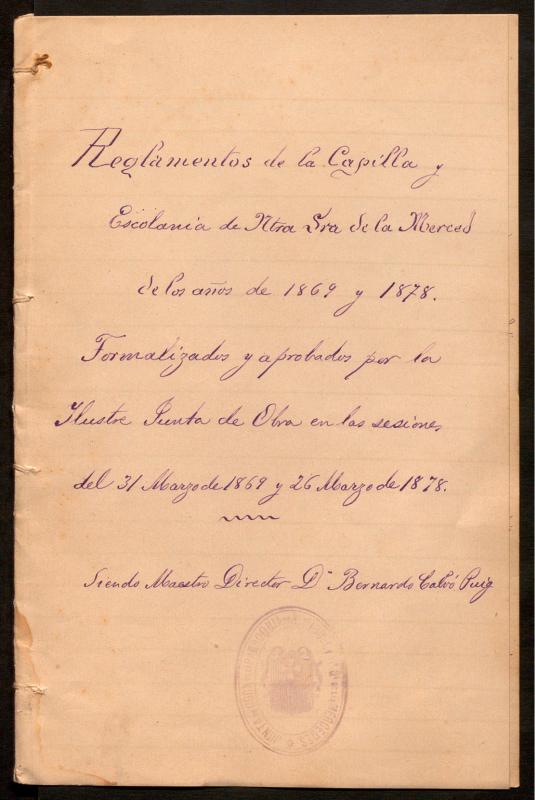 Reglamentos de la Capilla y
Escolania de Ntra Sra de la Merced
de los años de 1869 y 1878.
Formalizados y aprobados por la
Ilustre Junta de Obra en las sesiones
del 31 Marzo de 1869 y 26 Marzo de 1878.
Siendo Maestro Director Dn Bernardo Calvó Puig